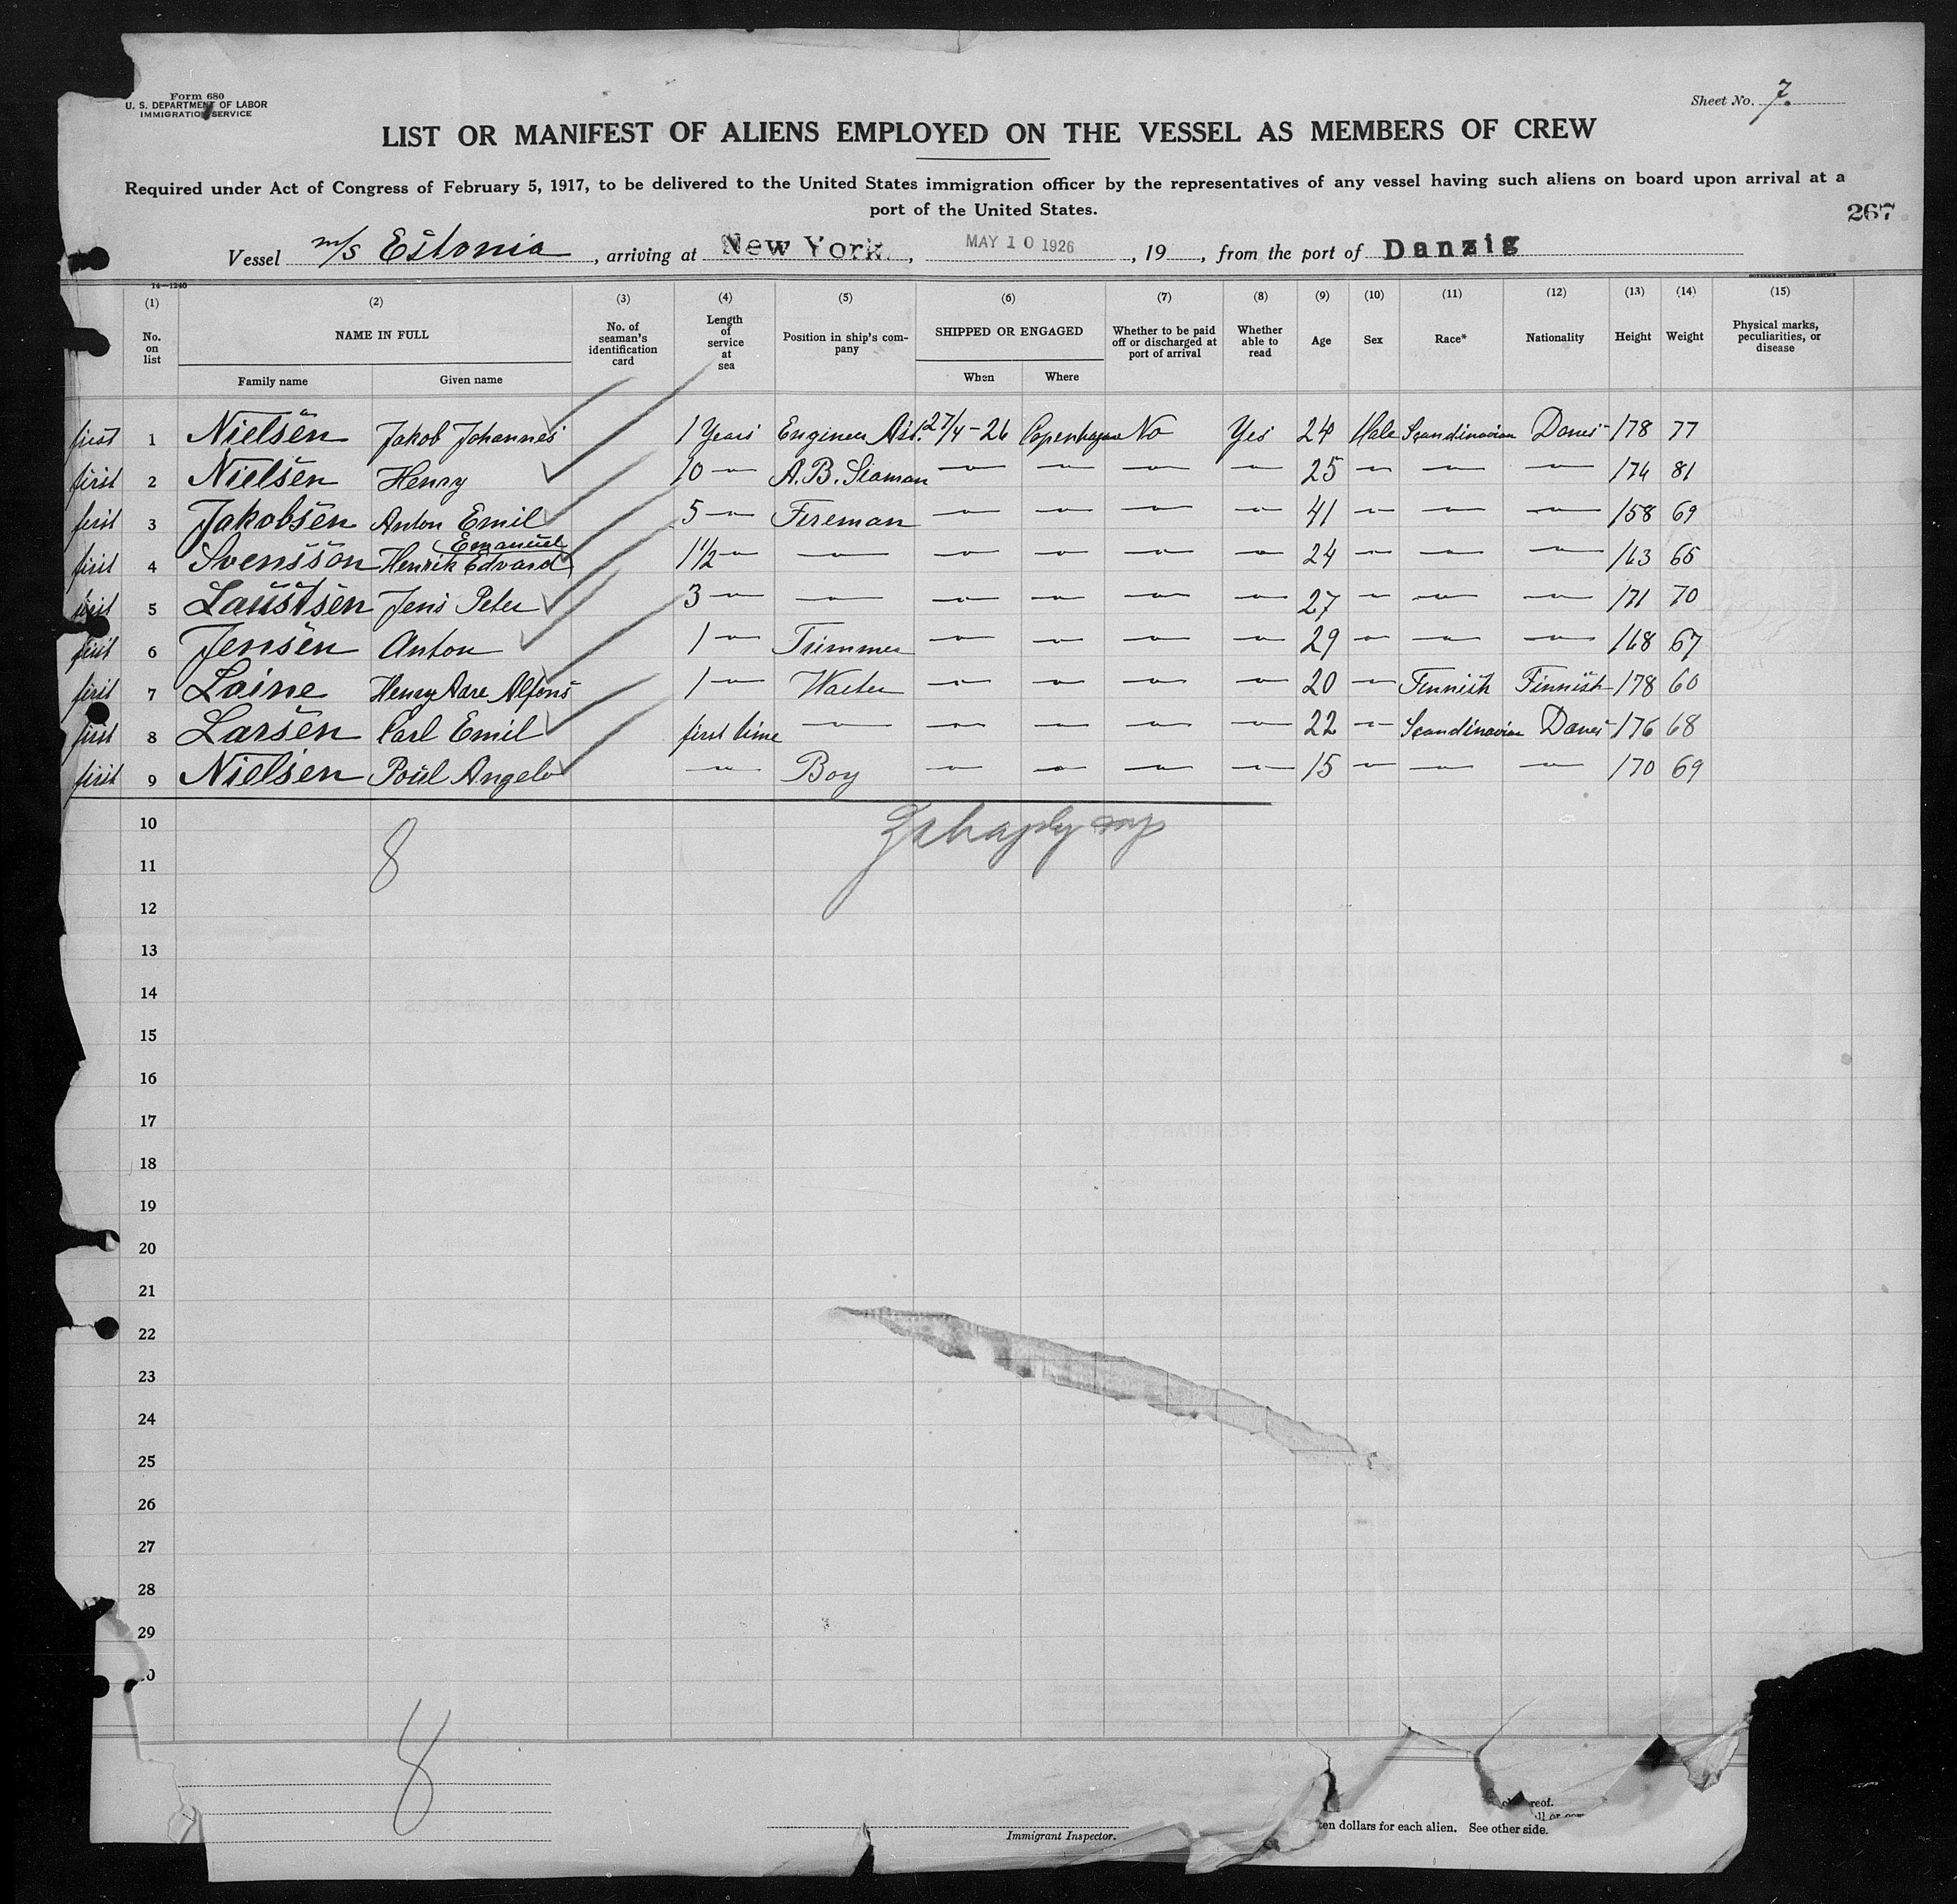 Form 680
U. S. DEPARTMENT OF LABOR
IMMIGRATION SERVICE
Sheet No. 7.
LIST OR MANIFEST OF ALIENS EMPLOYED ON THE VESSEL AS MEMBERS OF CREW
Required under Act of Congress of February 5, 1917, to be delivered to the United States immigration officer by the representatives of any vessel having such aliens on board upon arrival at a
port of the United States.
267
Vessel m/s Estonia, arriving at New York, MAY 10 1926, 19, from the port of Danzig
14—1240
GOVERNMENT PRINTING OFFICE
(1) (2) (3) (4) (5) (6) (7) (8) (9) (10) (11) (12) (13) (14) (15)
No. on list NAME IN FULL No. of seaman's identification card Length of service at sea Position in ship's company SHIPPED OR ENGAGED Whether to be paid off or discharged at port of arrival Whether able to read Age Sex Race* Nationality Height Weight Physical marks, peculiarities, or disease
Family name Given name When Where
first 1 Nielsen Jakob Johannes 1 Years Engineer Ass. 27/4-26 Copenhagen No Yes 24 Male Scandinavian Danes 178 77
first 2 Nielsen Henry 10 -"- A.B. Seaman -"- -"- -"- -"- 25 -"- -"- -"- 174 81
first 3 Jakobsen Anton Emil 5 -"- Fireman -"- -"- -"- -"- 41 -"- -"- -"- 158 69
Emanuel
first 4 Svensson Henrik Edvard 1 1/2 -"- -"- -"- -"- -"- -"- 24 -"- -"- -"- 163 65
first 5 Laustsen Jens Peter 3 -"- -"- -"- -"- -"- -"- 27 -"- -"- -"- 171 70
first 6 Jensen Anton 1 -"- Trimmer -"- -"- -"- -"- 29 -"- -"- -"- 168 67
first 7 Laine Henry Aare Alfons 1 -"- Waiter -"- -"- -"- -"- 20 -"- Finnish Finnish 178 60
first 8 Larsen Carl Emil first time -"- -"- -"- -"- -"- 22 -"- Scandinavian Danes 176 68
first 9 Nielsen Poul Angelo -"- Boy -"- -"- -"- -"- 15 -"- -"- -"- 170 69
10
8
11
12
13
14
15
16
17
18
19
20
21
22
23
24
25
26
27
28
29
8
Immigrant Inspector.
ten dollars for each alien. See other side.